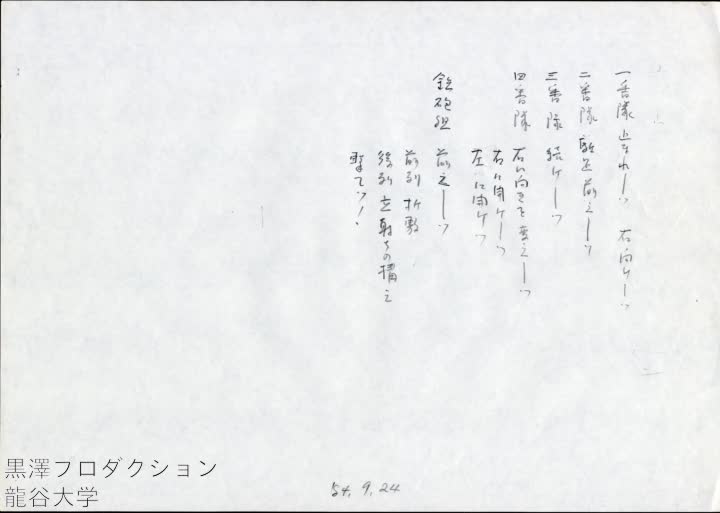 一番隊 止まれーッ 右向けーッ
二番隊 駈足前えーッ
三番隊 続けーッ
四番隊 右に向きを変えーッ
右に開けーッ
左に開けッ
鉄砲組 前えーッ
前列 折敷
後列 立射ちの構え
撃てッ!
54.9.24
黒澤フロダクション
龍谷大学